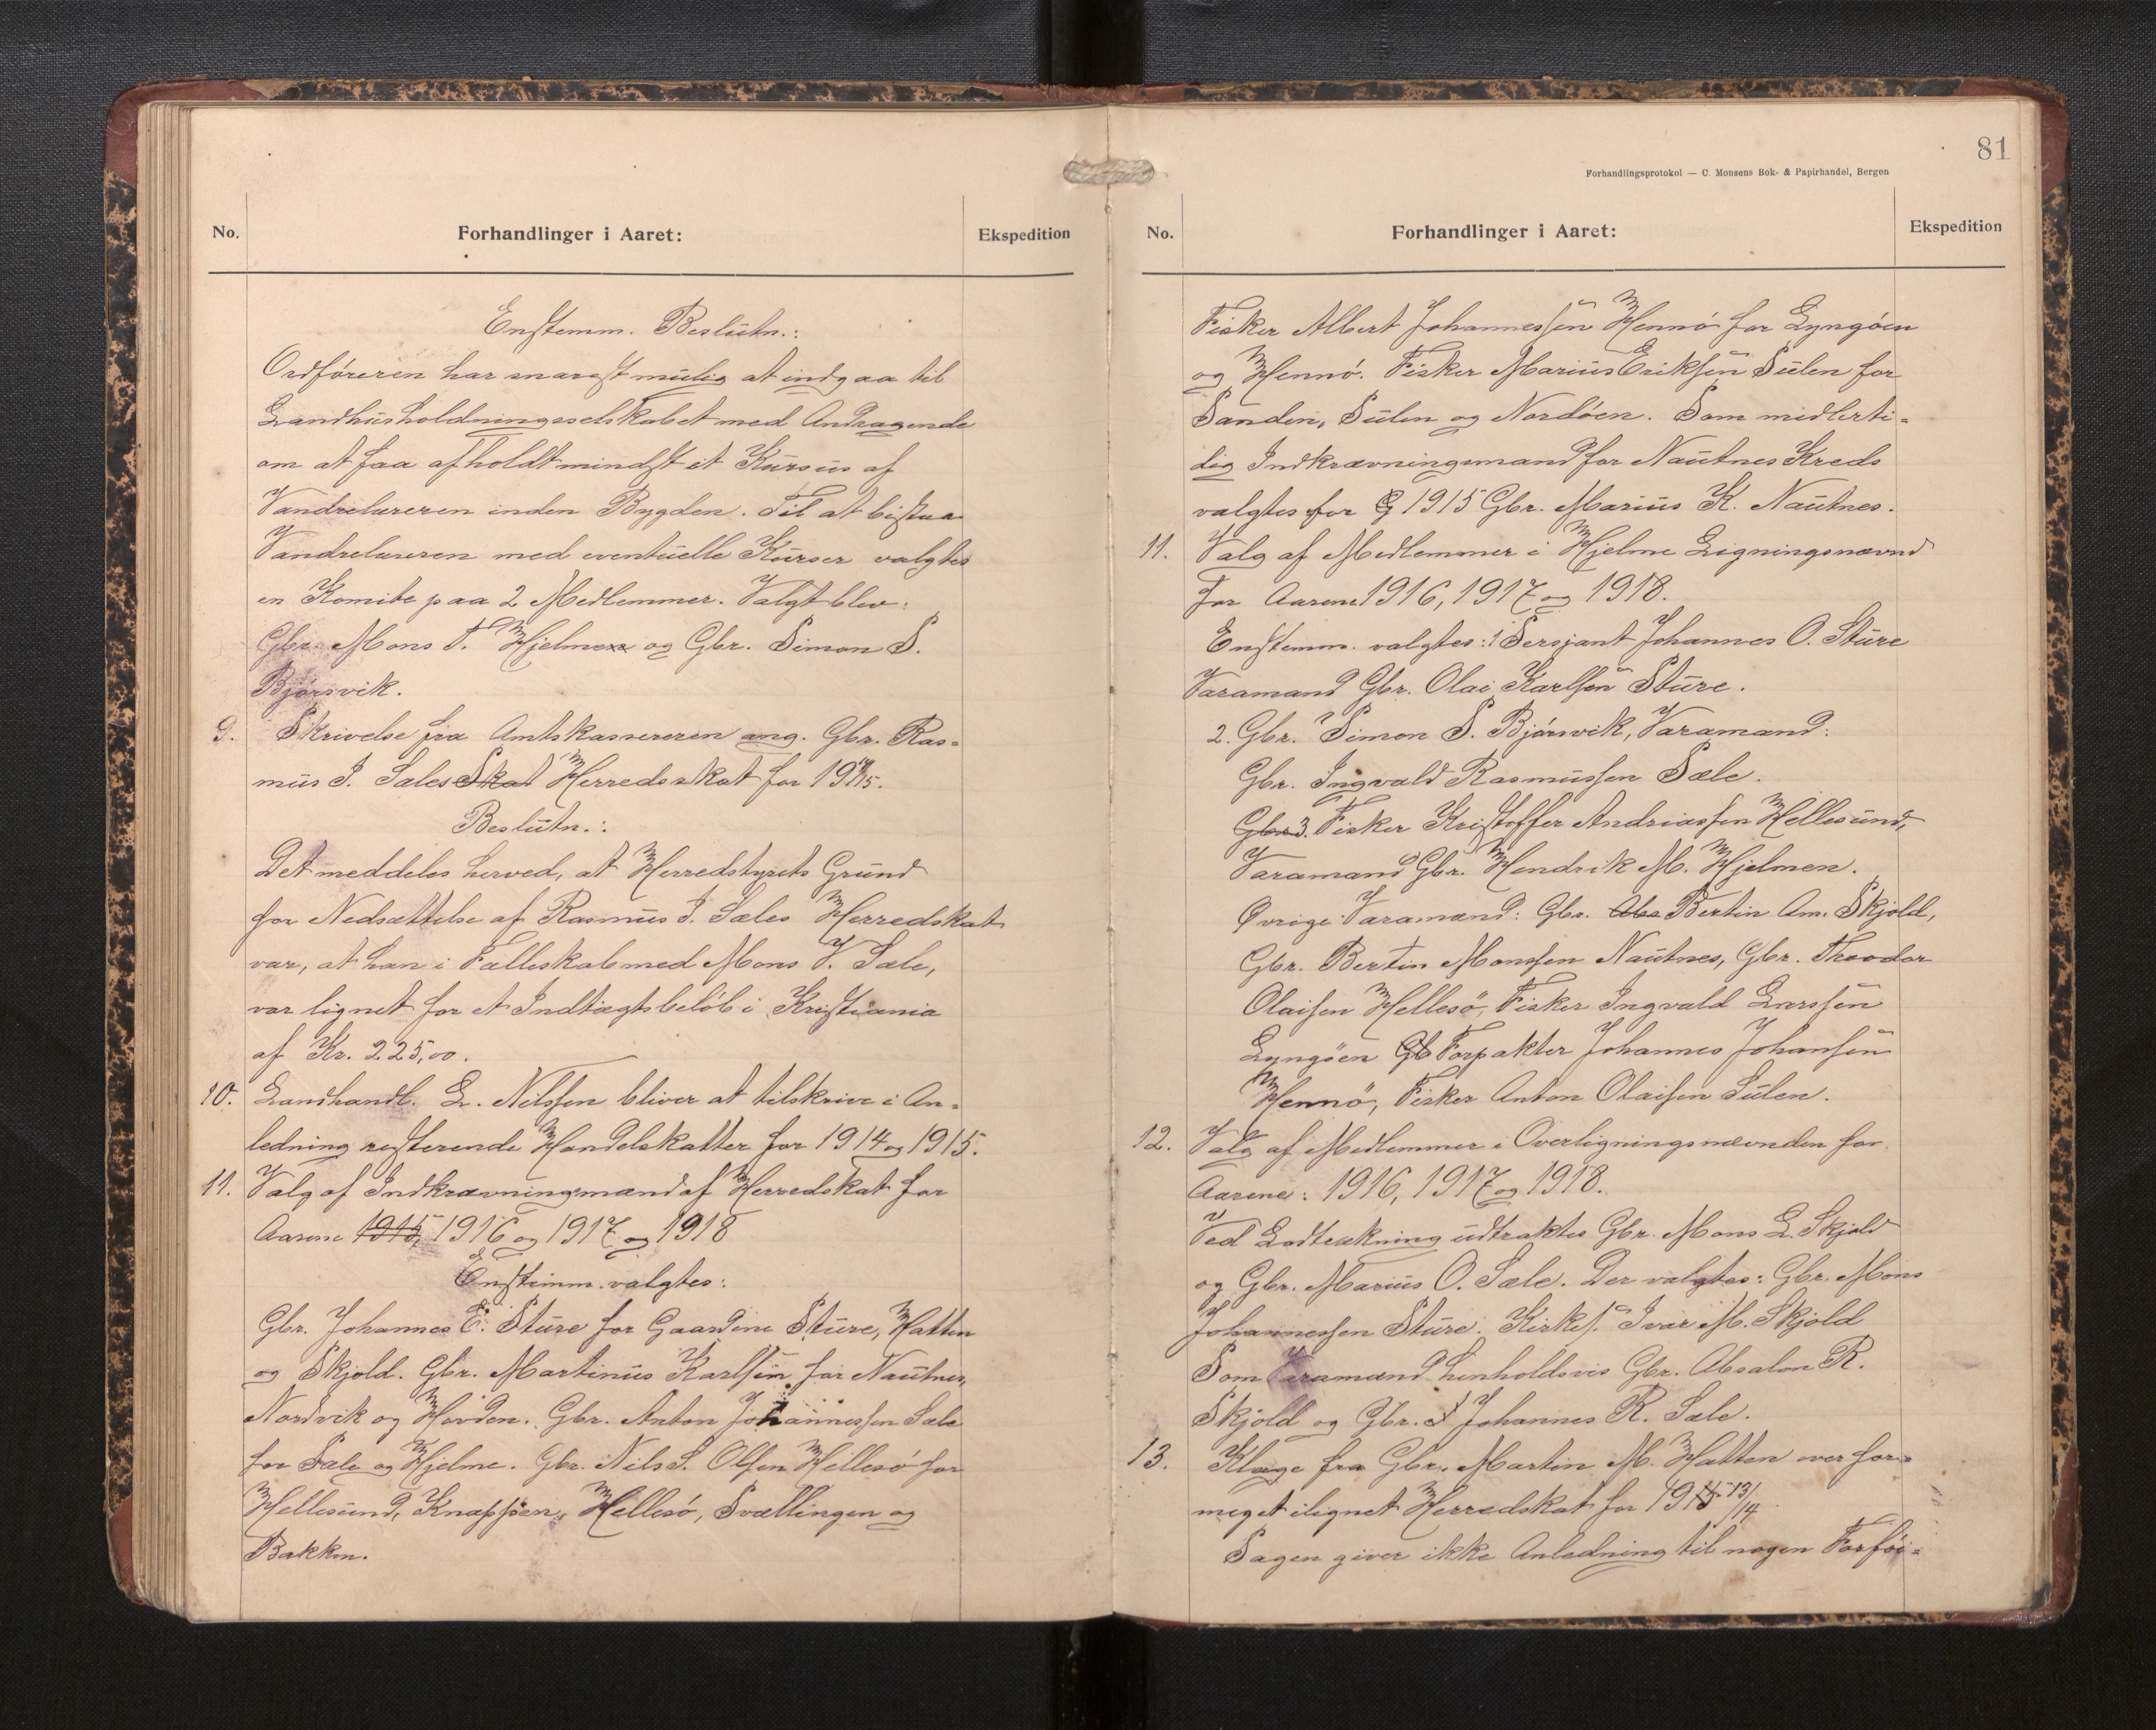 No.
Forhandlinger i Aaret:
Ekspedition
Enstemm. Beslutn.:
Ordføreren har snarest mulig at indgaa til
Landhusholdningsselskabet med Andragende
om at faa afholdt mindst et Kursus af
Vandrelæreren inden Bygden. Til at bistaa
Vandrelæreren med eventuelle Kurser valgtes
en Komite paa 2 Medlemmer. Valgt blev:
Gbr. Mons T. Hjelmen og Gbr. Simon S.
Bjørsvik.
9. Skrivelse fra Amtskassereren ang. Gbr. Ras-
mus J. Sæles Skat Herredsskat for 19 14/15.
Beslutn.:
Det meddeles herved, at Herredstyrets Grund
for Nedsættelse af Rasmus J. Sæles Herredskat
var, at han i Fælleskab med Mons V. Sæle,
var lignet for et Indtægtsbeløb i Kristiania
af Kr. 225,00.
10. Landhandl. L. Nilssen bliver at tilskrive i An-
ledning resterende Handelskatter for 1914 og 1915.
11. Valg af Indkrævningsmænd af Herredskat for
Aarene 1915, 1916 og 1917 og 1918
Enstemm. valgtes:
Gbr. Johannes E. Sture for Gaardene Sture, Hatten
og Skjold. Gbr. Martinus Karlsen for Nautnes,
Nordvik og Horden. Gbr. Anton Johannessen Sæle
for Sæle og Hjelme. Gbr. Nils S. Olsen Hellesø for
Hellesund, Knappøen, Hellesø, Svællingen og
Bakken.
81
Forhandlingsprotokol — C. Monsens Bok- & Papirhandel, Bergen
No.
Forhandlinger i Aaret:
Ekspedition
Fisker Albert Johannessen Hennø for Lyngøen
og Hennø. Fisker Marius Eriksen Sulen for
Sanden, Sulen og Nordøen. Som midlerti-
dig Indkrævningsmand for Nautnes Kreds
valgtes for G 1915 Gbr. Marius K. Nautnes.
11. Valg af Medlemmer i Hjelme Ligningsnævnd
for Aarene 1916, 1917 og 1918.
Enstemm. valgtes: 1 Sersjant Johannes O. Sture
Varamand Gbr. Olai Karlsen Sture.
2. Gbr. Simon S. Bjørsvik, Varamand:
Gbr. Ingvald Rasmussen Sæle.
Gbr. 3. Fisker Kristoffer Andriassen Hellesund,
Varamand Gbr. Hendrik M. Hjelmen.
Øvrige Varamænd: Gbr. Abs Bertin Am. Skjold,
Gbr. Bertin Monssen Nautnes, Gbr. Theodor
Olaisen Hellesö, Fisker Ingvald Larssen
Lyngöen Gb Forpakter Johannes Johansen
Hennö, Fisker Anton Olaisen Sulen.
12. Valg af Medlemmer i Overligningsnævnden for
Aarene: 1916, 1917 og 1918.
Ved Lodtrækning udtraktes Gbr. Mons L. Skjold
og Gbr. Marius O. Sæle. Der valgtes: Gbr. Mons
Johannessen Sture. Kirkes. Ivar M. Skjold
Som Varamænd henholdsvis Gbr. Absalon R.
Skjold og Gbr. Johannes R. Sæle.
13. Klage fra Gbr. Martin M. Hatten over for-
meget ilignet Herredskat for 19 13/14
Sagen giver ikke Anledning til nogen Forföi-